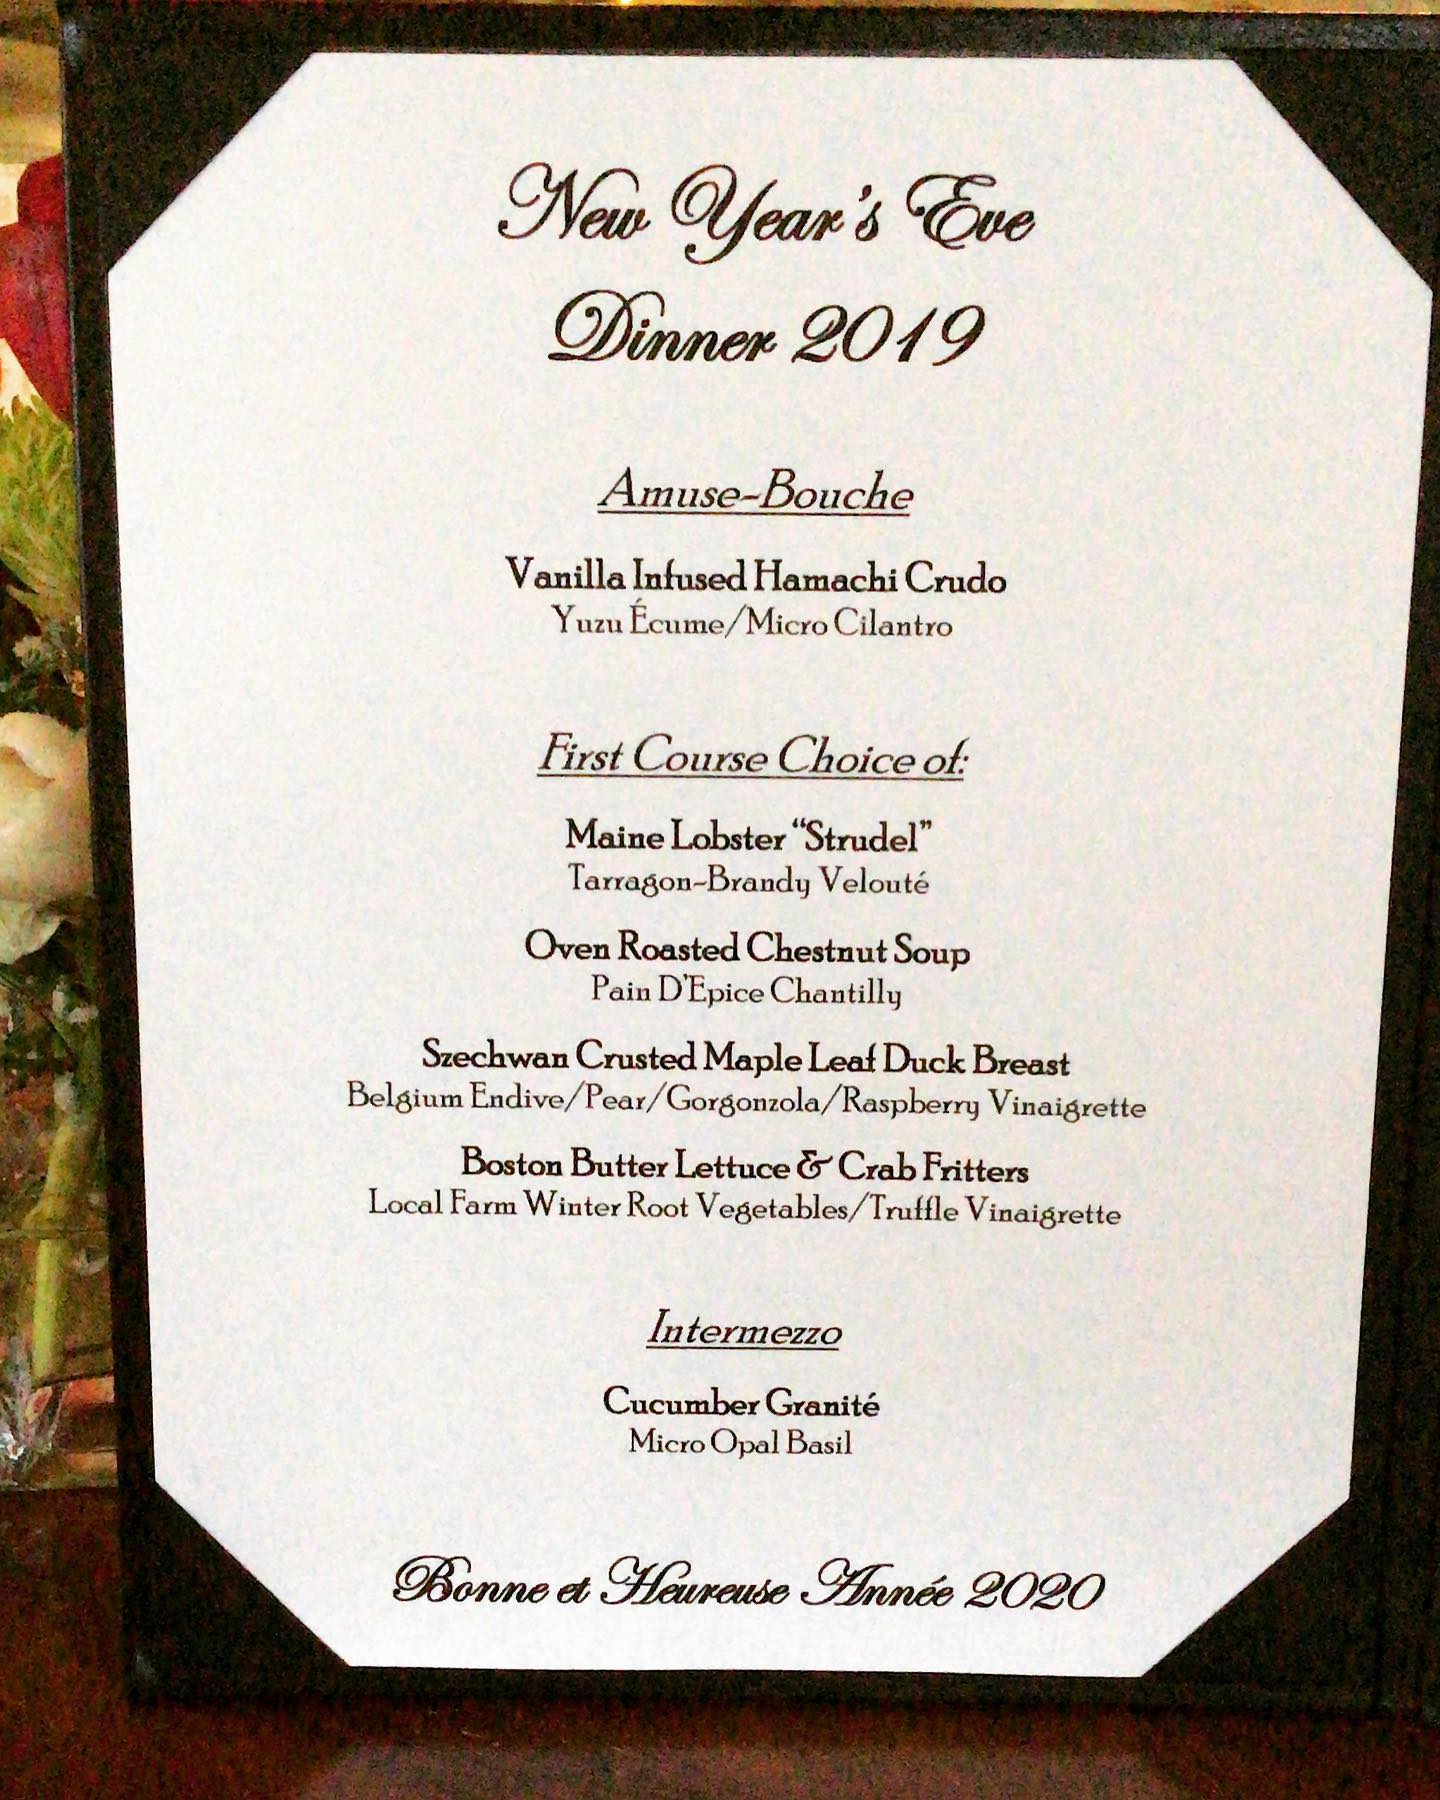 New Year's Eve
Dinner 2019
Amuse-Bouche
Vanilla Infused Hamachi Crudo
Yuzu Écume/Micro Cilantro
First Course Choice of:
Maine Lobster “Strudel”
Tarragon-Brandy Velouté
Oven Roasted Chestnut Soup
Pain D'Epice Chantilly
Szechwan Crusted Maple Leaf Duck Breast
Belgium Endive/Pear/Gorgonzola/Raspberry Vinaigrette
Boston Butter Lettuce & Crab Fritters
Local Farm Winter Root Vegetables/Truffle Vinaigrette
Intermezzo
Cucumber Granité
Micro Opal Basil
Bonne et Heureuse Année 2020